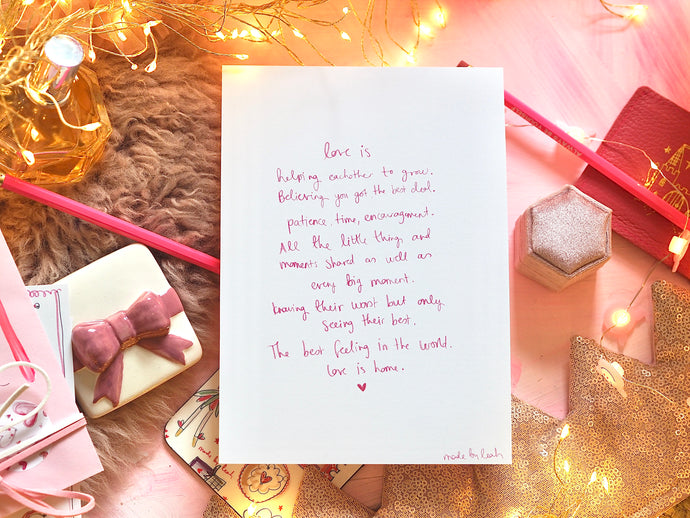 love is
helping eachother to grow.
Believing you got the best deal.
patience, time, encouragement.
All the little things and
moments shared as well as
every big moment.
knowing their worst but only
seeing their best.
The best feeling in the world.
love is home.
made by leah